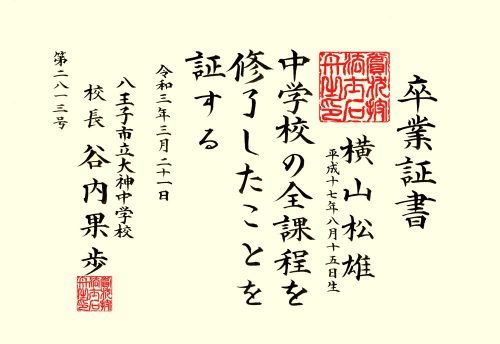 卒業証書
横山松雄
平成十七年八月十五日生
中学校の全課程を
修了したことを
証する
令和三年三月二十一日
八王子市立大神中学校
校長 谷内果歩
第二八一三号